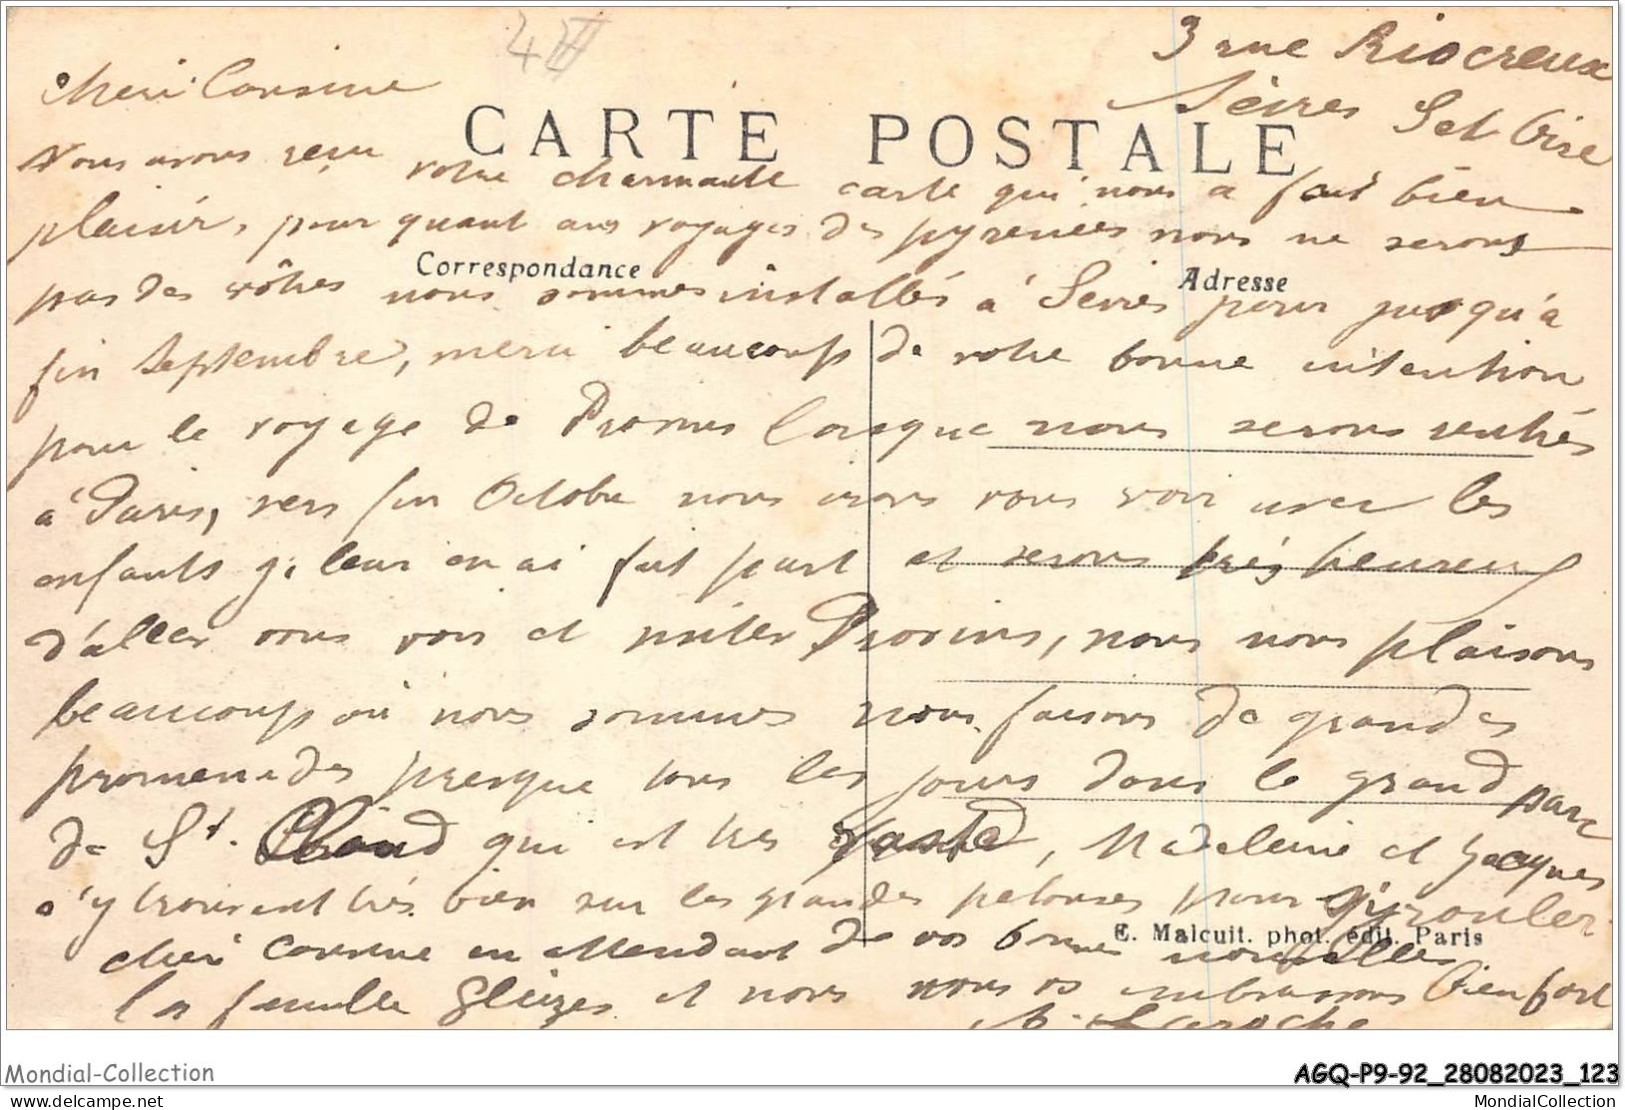 3 rue Riocreux
Sèvres S et Oise
Cheri Cousine
CARTE POSTALE
Nous avons reçu votre charmante carte qui nous a fait bien
plaisir, pour quant aux voyages des pyrenées nous ne serons
Correspondance
Adresse
pas des vôtres nous sommes installés à Sevres pour jusqu'a
fin Septembre, merci beaucoup de votre bonne intention
pour le voyage de Provins lorsque nous serons rentrés
à Paris, vers fin Octobre nous irons vous voir avec les
enfants je leur en ai fait part et serons très heureux
d'aller vous voir et visiter Provins, nous nous plaisons
beaucoup où nous sommes nous faisons de grandes
promenades presque tous les jours dans le grand parc
de St. Cloud qui est très vaste, Madeleine et Jacques
s'y trouvent très bien sur les grandes pelouses pour s'y rouler
E. Malcuit. phot. édit. Paris
cheri cousine en attendant de vos bonnes nouvelles
la famille Gleizes et nous nous vs embrassons bien fort
Laroche
Mondial-Collection
AGQ-P9-92_28082023_123
www.delcampe.net
MondialCollection